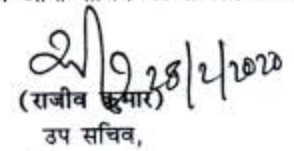 28/2/2020
(राजीव कुमार)
उप सचिव,